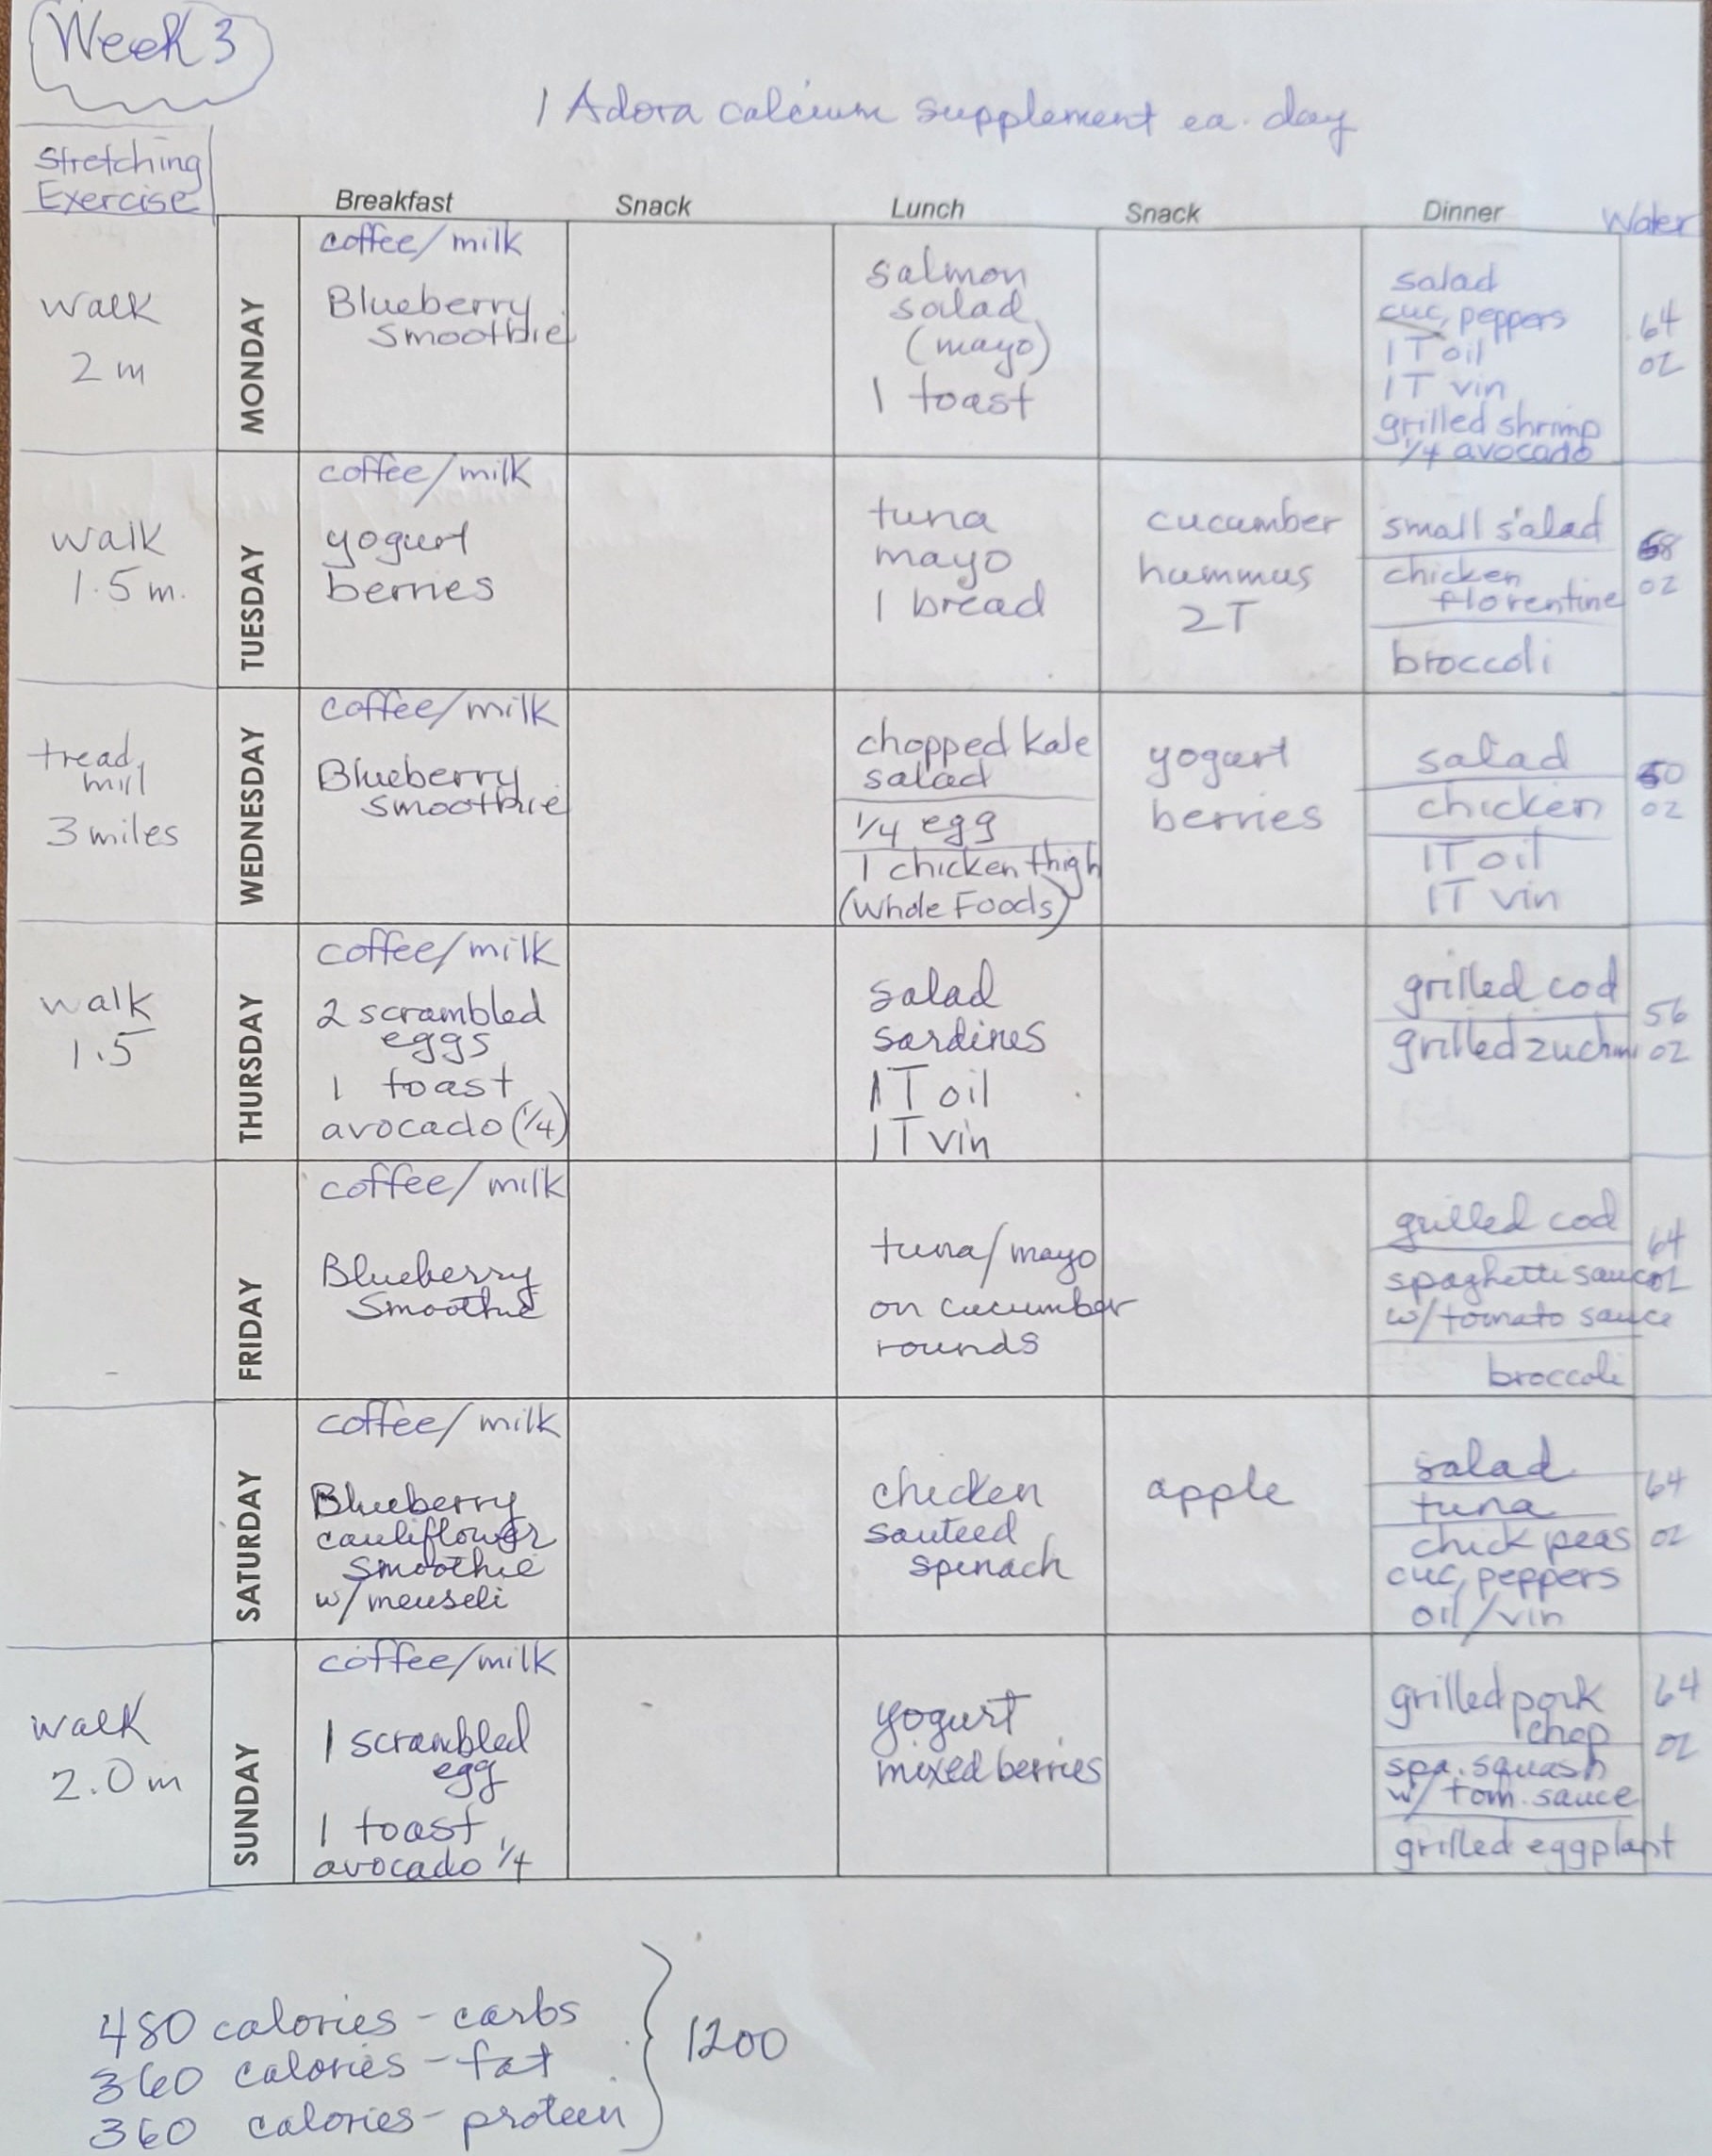 Week 3
1 Adora calcium supplement ea. day
Stretching
Exercise
Breakfast Snack Lunch Snack Dinner Water
walk
2 m
MONDAY
coffee/milk
Blueberry
smoothie
salmon
salad
(mayo)
1 toast
salad
cuc, peppers
1 T oil
1 T vin
grilled shrimp
1/4 avocado
64
oz
walk
1.5 m.
TUESDAY
coffee/milk
yogurt
berries
tuna
mayo
1 bread
cucumber
hummus
2T
small salad
chicken
florentine
broccoli
68
oz
tread
mill
3 miles
WEDNESDAY
coffee/milk
Blueberry
smoothie
chopped kale
salad
1/4 egg
1 chicken thigh
(Whole Foods)
yogurt
berries
salad
chicken
1T oil
1T vin
oz
walk
1.5
THURSDAY
coffee/milk
2 scrambled
eggs
1 toast
avocado (1/4)
salad
sardines
1 T oil
1 T vin
grilled cod
grilled zuchini
56
oz
FRIDAY
coffee/milk
Blueberry
Smoothie
tuna/mayo
on cucumber
rounds
grilled cod
spaghetti sauce
w/tomato sauce
broccoli
64
oz
SATURDAY
coffee/milk
Blueberry
cauliflower
smoothie
w/meuseli
chicken
sauteed
spinach
apple
salad
tuna
chick peas
cuc, peppers
oil/vin
64
oz
walk
2.0 m
SUNDAY
coffee/milk
1 scrambled
egg
1 toast
avocado 1/4
yogurt
mixed berries
grilled pork
chop
spa. squash
w/ tom. sauce
grilled eggplant
64
oz
480 calories - carbs
360 calories - fat
360 calories - protein
1200